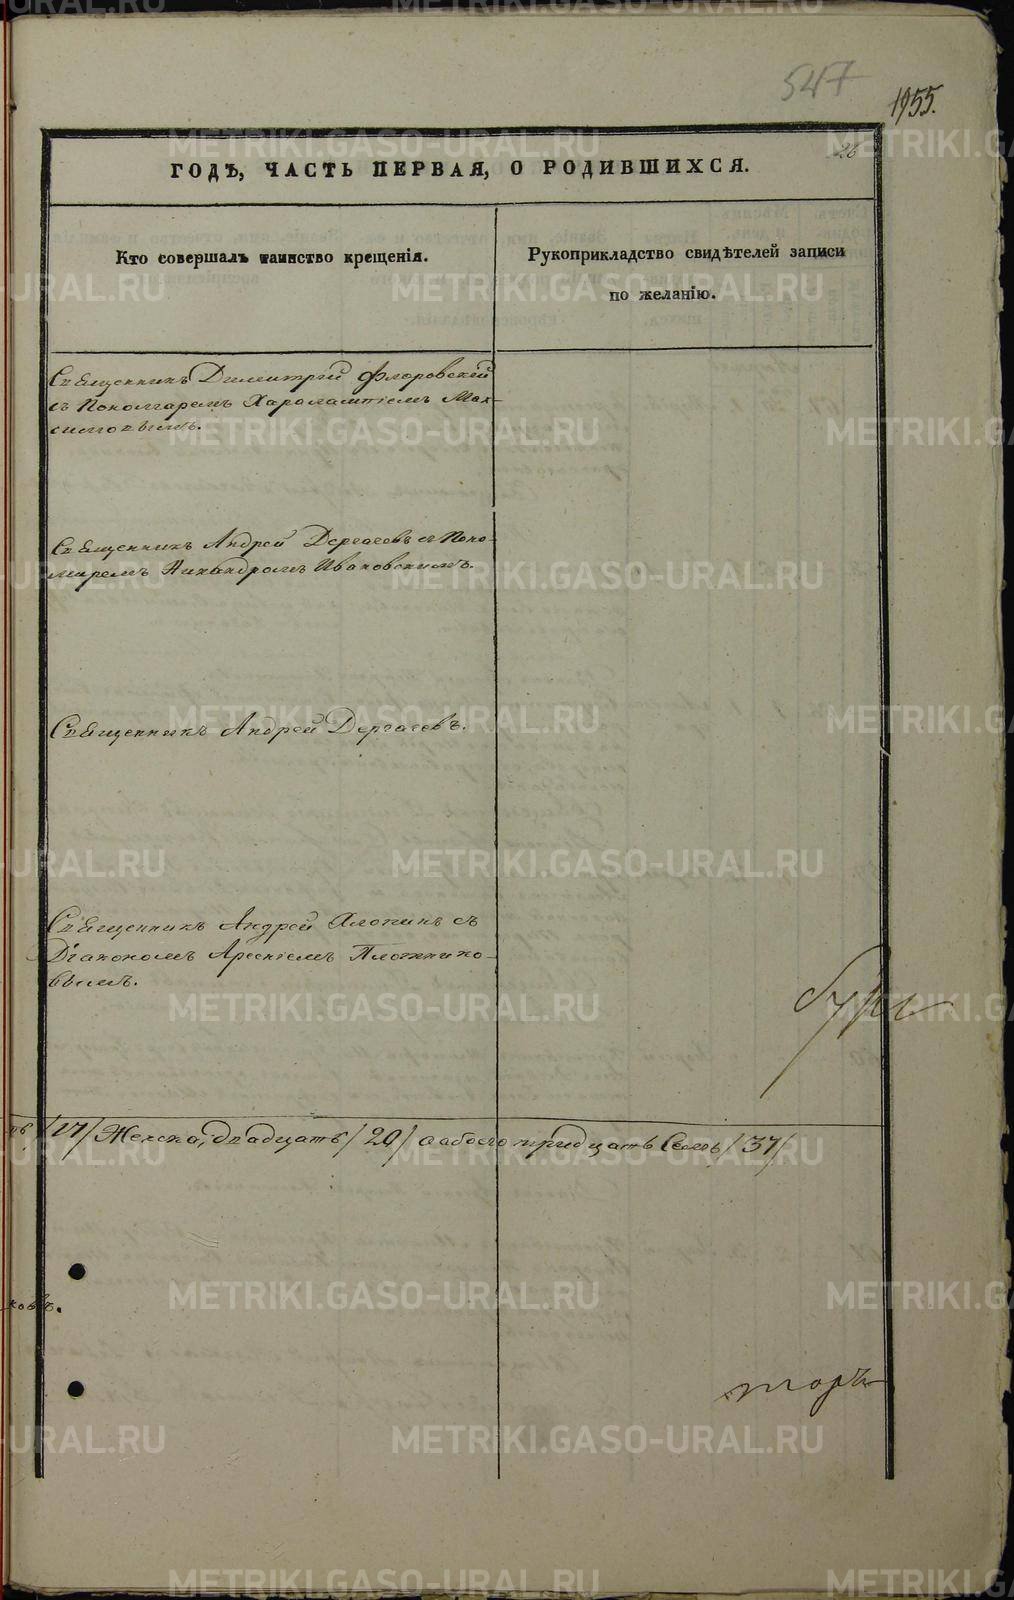 547
1955.
26
ГОДѢ, ЧАСТЬ ПЕРВАЯ, О РОДИВШИХСЯ.
Кто совершалъ таинство крещенія.
Рукоприкладство свидѣтелей записи
по желанію.
Священникъ Димитрій Флоровскій
съ Пономаремъ Харалампіемъ Мак-
симовымъ.
Священникъ Андрей Дергачевъ съ Поно-
маремъ Никандромъ Ивановскимъ.
Священникъ Андрей Дергачевъ.
Священникъ Андрей Хлопинъ съ
Діакономъ Арсеніемъ Плотнико-
вымъ.
/17/ Женска, двадцать /20/ а обоего тридцать Семь /37/
ковъ.
METRIKI.GASO-URAL.RU